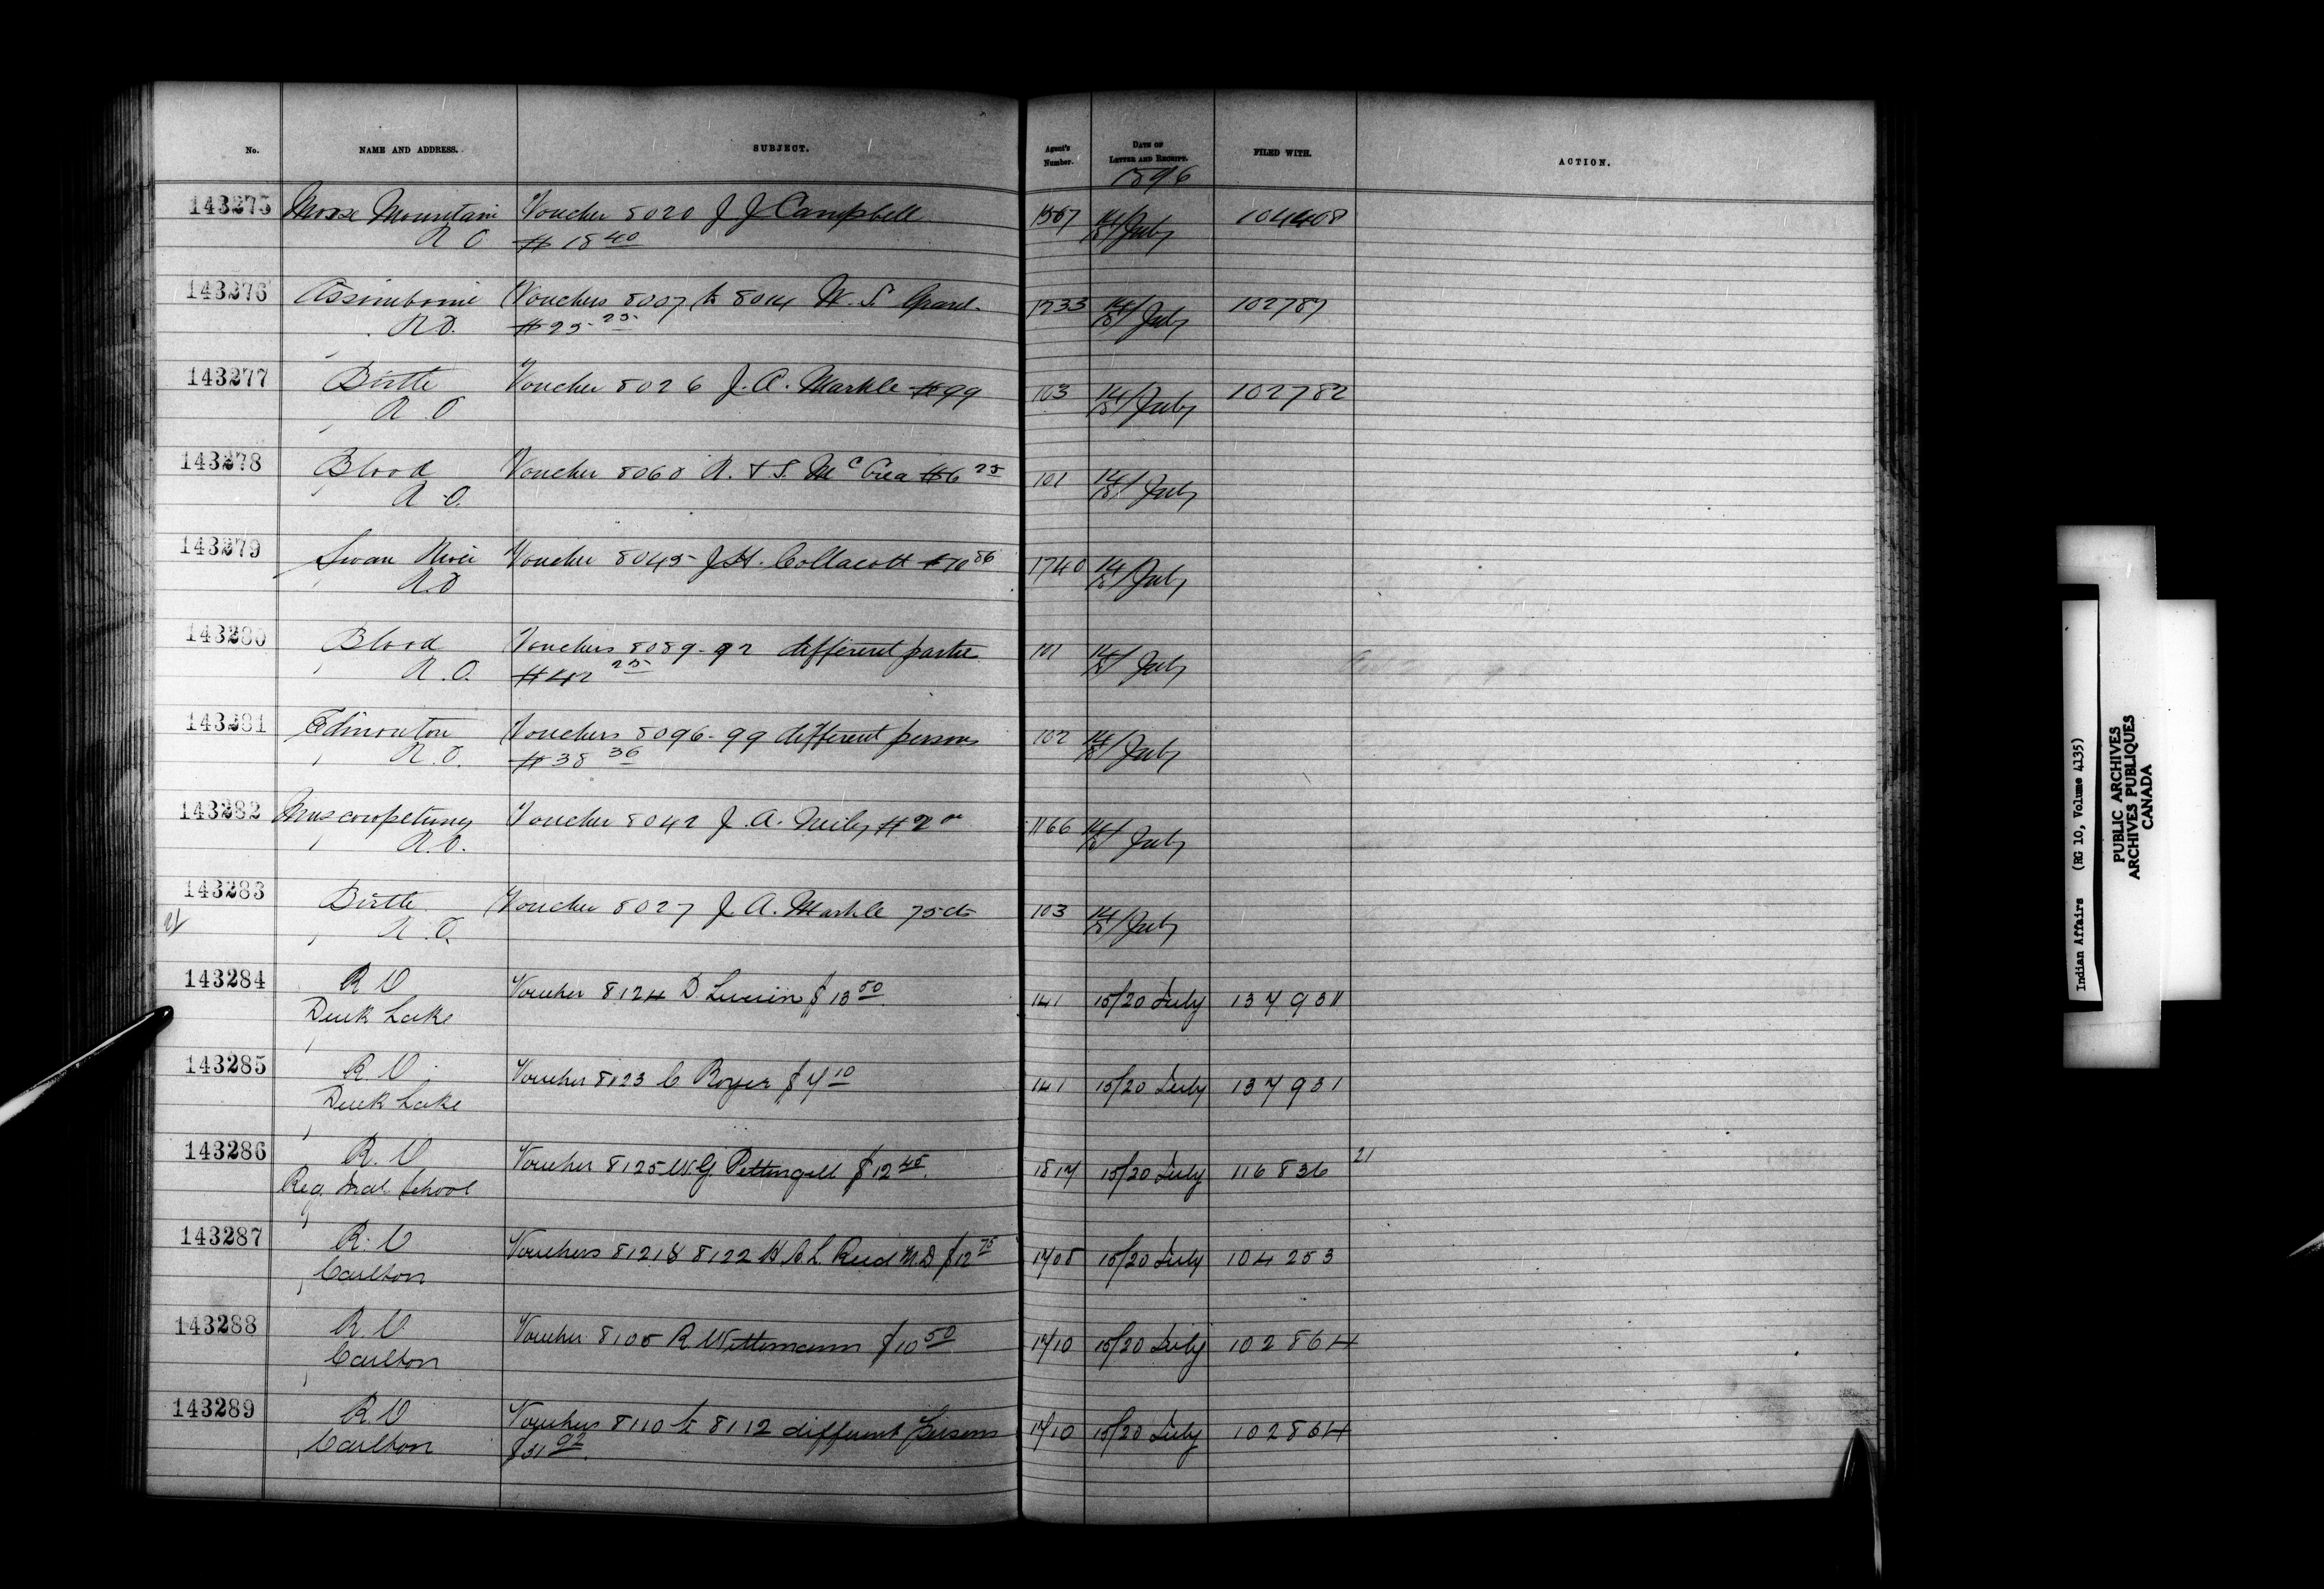 No. NAME AND ADDRESS. SUBJECT. Agent's Number. DATE OF LETTER AND RECEIPT. FILED WITH. ACTION.
1896
143275 Moose Mountain Voucher 8020 J J Campbell 1567 14/18/July 104408
R O $18 40
143276 Assiniboine Vouchers 8007 to 8014 W. S. Grant 1733 14/18/July 102787
R O. $25 25
143277 Birtle Voucher 8026 J. A. Markle $99 103 14/18/July 102782
R. O
143278 Blood Voucher 8068 R. & S. McCrea $6 25 101 14/18/July
R O.
143279 Swan River Voucher 8045 J H. Collacott $70 86 1740 14/18/July
R. O
143280 Blood Vouchers 8089-92 different parties 101 14/18/July
R. O. $42 25
143281 Edmonton Vouchers 8096-99 different persons 102 14/18/July
R. O. $38 36
143282 Muscowpetungs Voucher 8042 J. A. Neily $2 00 1166 14/18/July
R. O.
143283 Birtle Voucher 8027 J. A. Markle 75 cts 103 14/18/July
R. O.
143284 R O Voucher 8124 D $13 50 141 15/20 July 137931
Duck Lake
143285 R. O Voucher 8123 C Boyer $7 10 141 15/20 July 137931
Duck Lake
143286 R. O Voucher 8125 W. G. Pettingell $12 45 1817 15/20 July 116836 21
Reg. Ind. School
143287 R. O Vouchers 8121 & 8122 H. A. L. Reid M.D $12 75 1708 15/20 July 104253
Carlton
143288 R. O Voucher 8105 R. Wittemann $10 50 1710 15/20 July 102864
Carlton
143289 R. O Vouchers 8110 to 8112 different Persons 1710 15/20 July 102864
Carlton $31 92
Indian Affairs (RG 10, Volume 4135)
PUBLIC ARCHIVES
ARCHIVES PUBLIQUES
CANADA